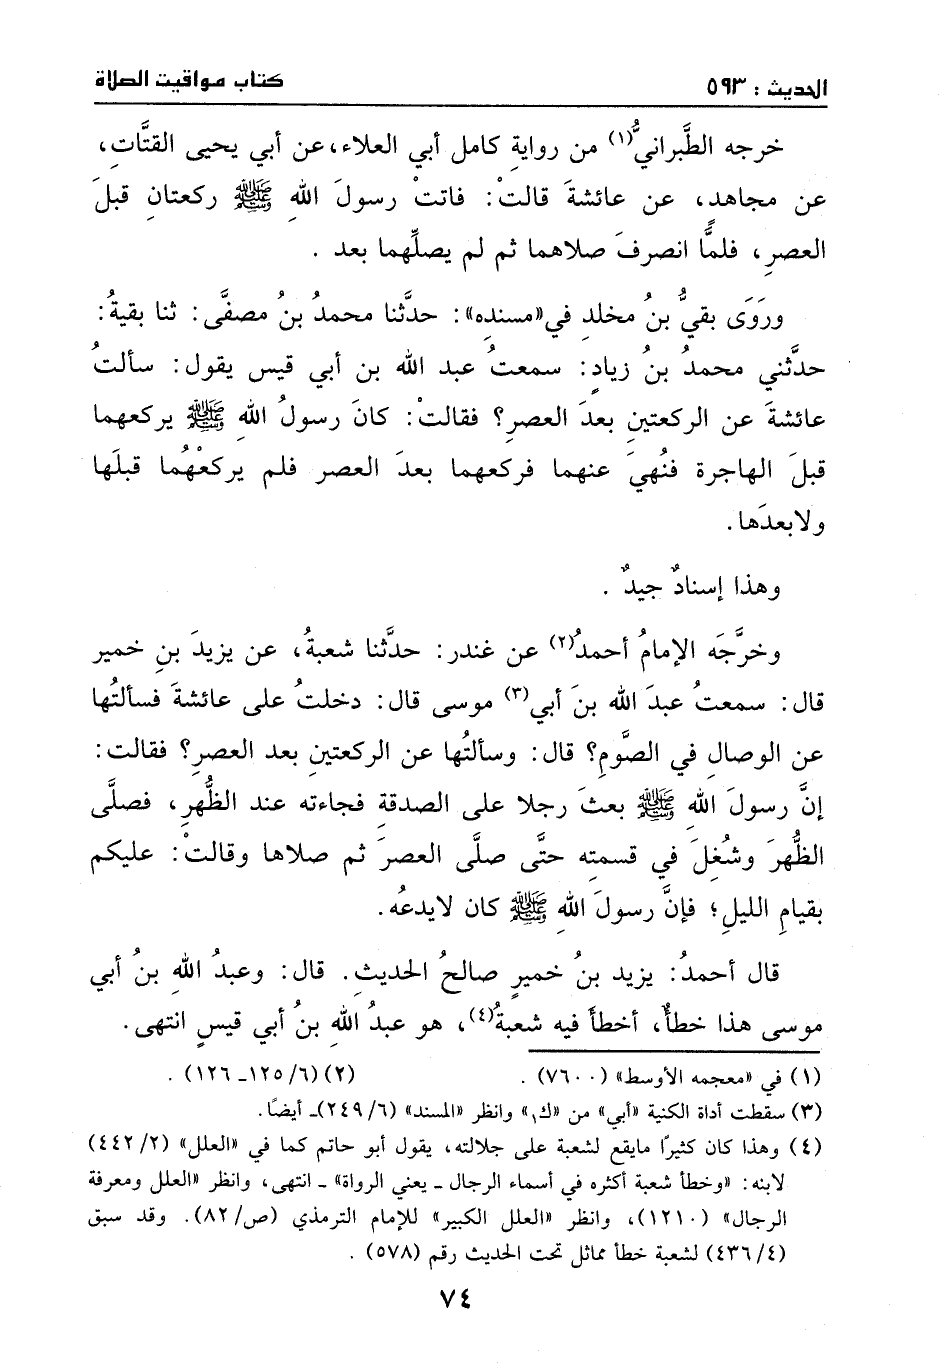 الحديث : ٥٩٣
كتاب مواقيت الصلاة
خرجه الطَّبراني(١) من روايةِ كامل أبي العلاء، عن أبي يحيى القتَّاتِ،
عن مجاهدٍ، عن عائشةَ قالتْ: فاتتْ رسولَ اللهِ ﷺ ركعتانِ قبلَ
العصرِ، فلمَّا انصرفَ صلاهما ثم لم يصلِّهما بعد .
وروَى بقيُّ بنُ مخلدٍ في «مسنده»: حدَّثنا محمدُ بنُ مصفَّى: ثنا بقيةُ:
حدَّثني محمدُ بنُ زيادٍ: سمعتُ عبد الله بن أبي قيس يقول: سألتُ
عائشةَ عن الركعتينِ بعدَ العصرِ؟ فقالتْ: كانَ رسولُ اللهِ ﷺ يركعهما
قبلَ الهاجرة فنُهيَ عنهما فركعهما بعدَ العصر فلم يركعْهُما قبلَها
ولابعدَها.
وهذا إسنادٌ جيدٌ .
وخرَّجَه الإمامُ أحمدُ(٢) عن غندر: حدَّثنا شعبةُ، عن يزيدَ بنِ خمير
قال: سمعتُ عبدَ الله بنَ أبي(٣) موسى قال: دخلتُ على عائشةَ فسألتُها
عن الوصالِ في الصَّومِ؟ قال: وسألتُها عن الركعتينِ بعد العصرِ؟ فقالت:
إنَّ رسولَ اللهِ ﷺ بعثَ رجلا على الصدقةِ فجاءته عند الظُّهرِ، فصلَّى
الظُّهرَ وشُغِلَ في قسمتِه حتَّى صلَّى العصرَ ثم صلاها وقالتْ: عليكم
بقيامِ الليلِ؛ فإنَّ رسولَ اللهِ ﷺ كان لايدعُه.
قال أحمدُ: يزيد بنُ خميرٍ صالحُ الحديثِ. قال: وعبدُ اللهِ بنُ أبي
موسى هذا خطأٌ، أخطأَ فيه شعبةُ(٤)، هو عبدُ اللهِ بنُ أبي قيسٍ انتهى.
(١) في «معجمه الأوسط» (٧٦٠٠) . (٢) (٦/ ١٢٥ـ ١٢٦) .
(٣) سقطت أداة الكنية «أبي» من «ك١» وانظر «المسند» (٦/ ٢٤٩)ـ أيضًا.
(٤) وهذا كان كثيرًا مايقع لشعبة على جلالته، يقول أبو حاتم كما في «العلل» (٢/ ٤٤٢)
لابنه: «وخطأ شعبة أكثره في أسماء الرجال ـ يعني الرواة» ـ انتهى، وانظر «العلل ومعرفة
الرجال» (١٢١٠)، وانظر «العلل الكبير» للإمام الترمذي (ص/ ٨٢). وقد سبق
(٤/ ٤٣٦) لشعبة خطأ مماثل تحت الحديث رقم (٥٧٨) .
٧٤